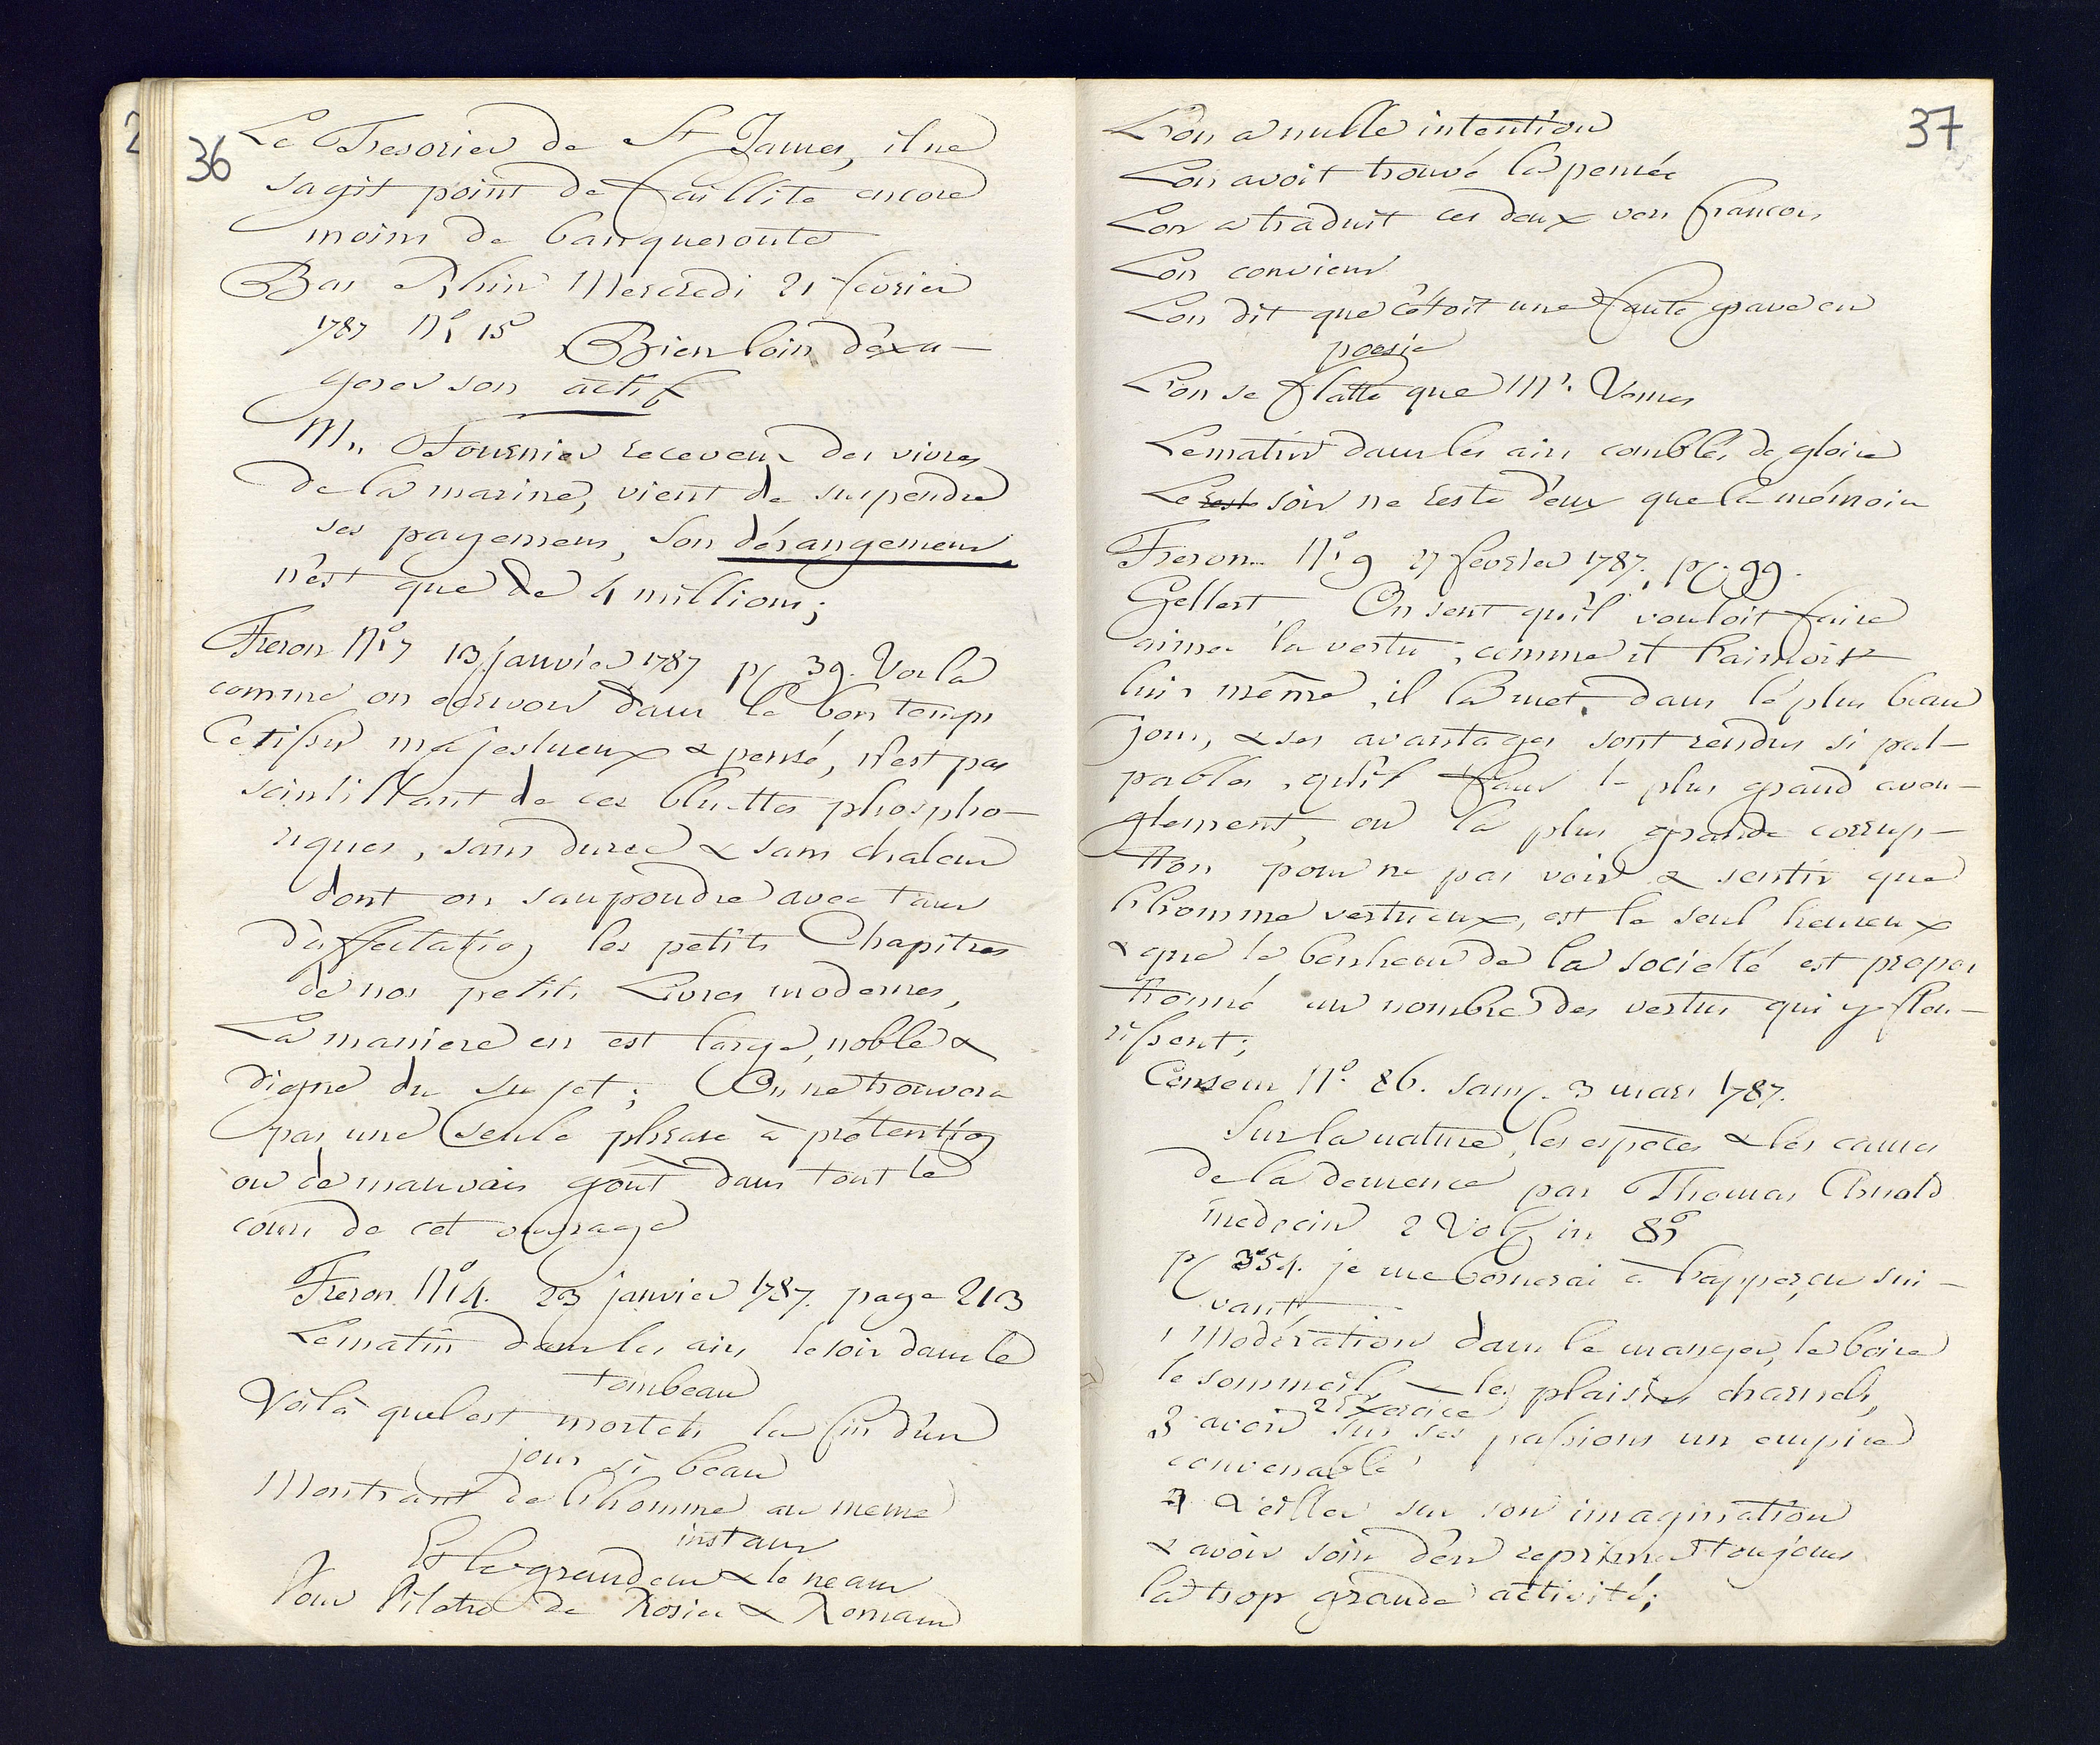 36
Le Tresorier de St James, il ne
sagit point de faillite encore
moins de banqueroute
Bas Rhin Mercredi 21 fevrier
1787 No 15 Bien loin d'exa-
gerer son actif
Mr. Fournier receveur des vivres
de la marine, vient de suspendre
ses payemens, son dérangement
n'est que de 4 millions;
Freron No 7 13 janvier 1787 pg 39. Voila
comme on ecrivoit dans le bon temps
Ce tissu majestueux & pensé, n'est pas
scintillant de ces bluettes phospho-
riques, sans durée & sans chaleur
dont on saupoudre avec tant
d'affectation les petits Chapitres
de nos petits Livres modernes,
La maniere en est large, noble &
digne du sujet; On ne trouvera
pas une seule phrase à prétention
ou de mauvais goût dans tout le
cours de cet ouvrage
Freron No 4. 23 janvier 1787. page 213
Le matin dans les airs le soir dans le
tombeau
Voilà quel est mortels la fin d'un
jour si beau
Montrant de l'homme au meme
instant
Et la grandeur & le neant
Pour Pilatre de Rosier & Romain
37
L'on a nulle intention
L'on avoit trouvé la pensée
L'on a traduit ces deux vers francois
L'on convient
L'on dit que c'étoit une faute grave en
poesie
L'on se flatte que Mr. Vernes
Le matin dans les airs comblés de gloire
Le reste soir ne reste d'eux que la mémoire
Freron No 9 27 fevrier 1787. pg. 99.
Gellert On sent qu'il vouloit faire
aimer la vertu, comme il l'aimoit
lui même, il la met dans le plus beau
jour, & ses avantages sont rendus si pal-
pables, qu'il faut le plus grand aveu-
glement, ou la plus grande corrup-
tion pour ne pas voir & sentir que
l'homme vertueux, est le seul heureux
& que le bonheur de la societté est propor
tionné au nombre des vertus qui y fleu-
rissent;
Censeur No. 86. sam. 3 mars 1787.
Sur la nature, les espèces & les causes
de la demence par Thomas Arnold
medecin 2 Vol in 8o
pg 354. je me bornerai à l'apperçu sui-
vant
1 Modération dans le manger, le boire
le sommeil — les plaisirs charnels,
2 Exercice
3 avoir sur ses passions un empire
convenable
4 Veiller sur son imagination
& avoir soin d'en reprimer toujours
la trop grande activité;